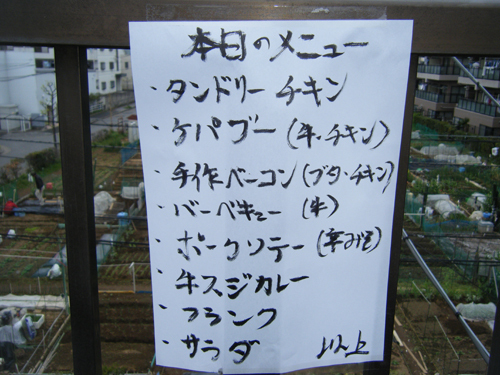 本日のメニュー
・タンドリーチキン
・ケパブー(牛、チキン)
・手作ベーコン(ブタ・チキン)
・バーベキュー(牛)
・ポークソテー(辛みそ)
・牛スジカレー
・フランク
・サラダ
以上